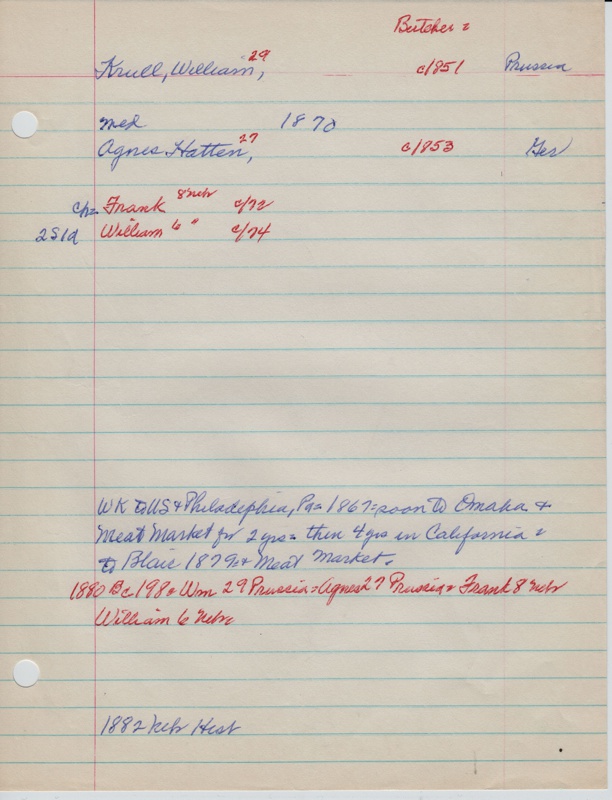 Butcher =
Krull, William, 29 c/851 Prussia
med 1870
Agnes Hatten, 27 c/853 Ger
ch= Frank 8 Nebr c/72
2S1d William 6 " c/74
WK to US & Philadelphia, Pa = 1867 = soon to Omaha &
Meat Market for 2 yrs = then 4 yrs in California =
to Blair 1879 = & Meat Market.
1880 Bc 198 = Wm 29 Prussia = Agnes 27 Prussia = Frank 8 Nebr
William 6 Nebr
1882 Nebr Hist